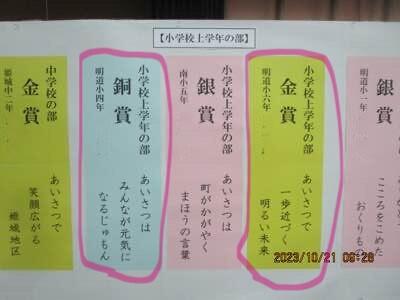 【小学校上学年の部】
銀賞
明道小一年
こころをこめた
おくりもの
小学校上学年の部
金賞
明道小六年
あいさつで
一歩近づく
明るい未来
小学校上学年の部
銀賞
南小五年
あいさつは
町がかがやく
まほうの言葉
小学校上学年の部
銅賞
明道小四年
あいさつは
みんなが元気に
なるじゅもん
中学校の部
金賞
姫城中二年
あいさつで
笑顔広がる
姫城地区
2023/10/21 09:28